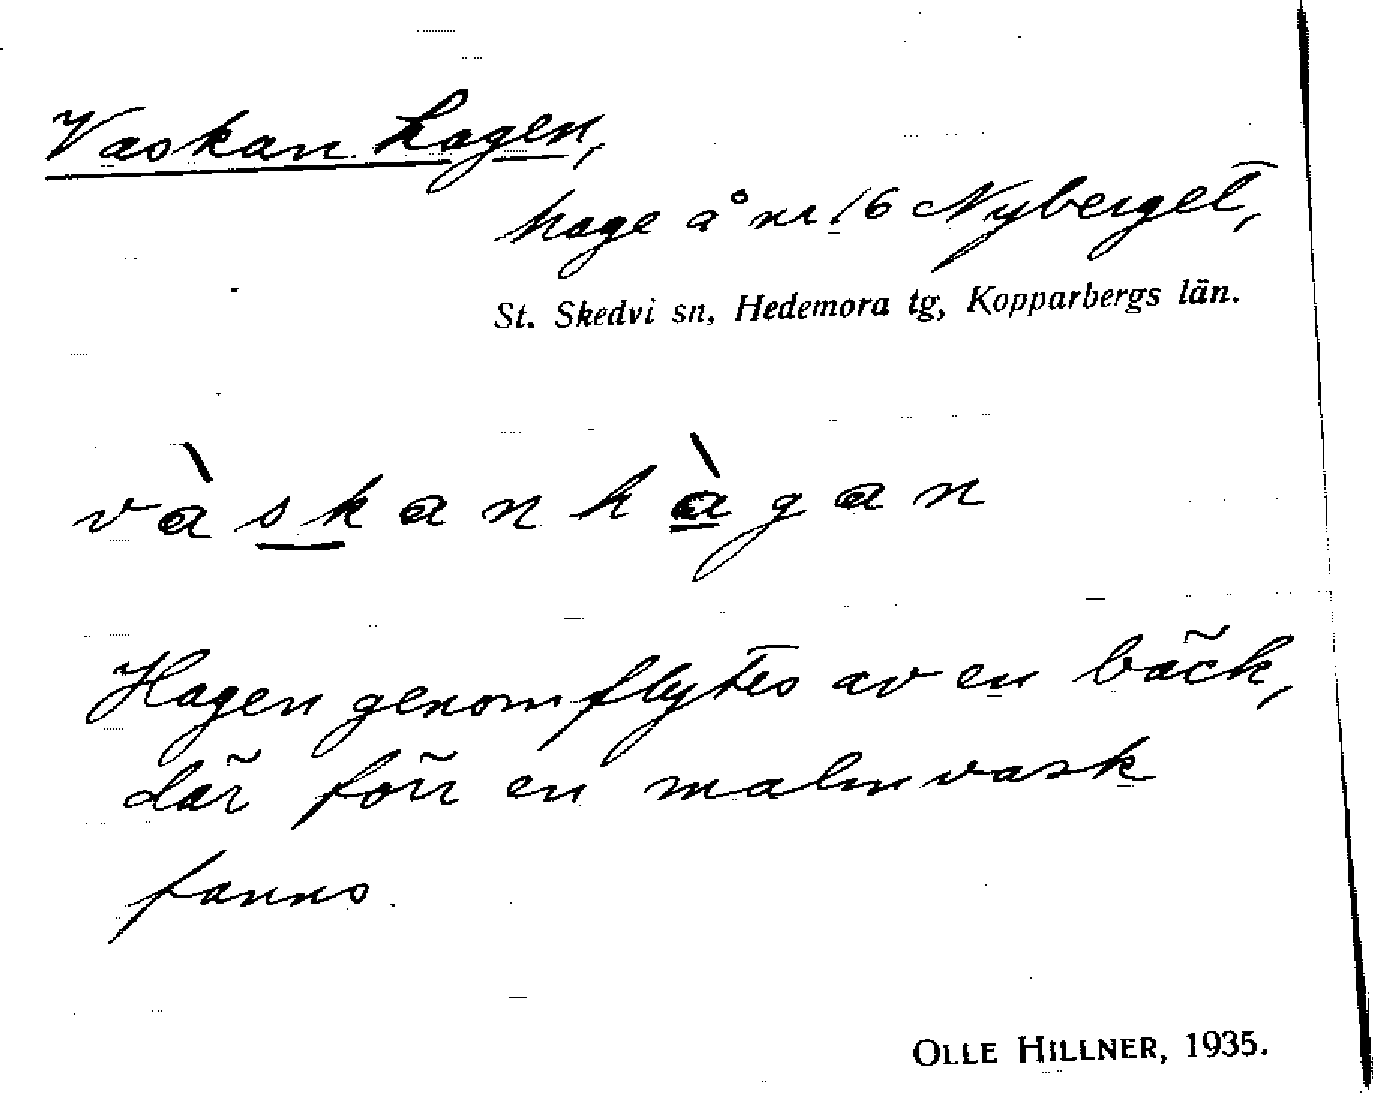 Vaskanhagen,
hage å nr 16 Nyberget,
St. Skedvi sn, Hedemora tg, Kopparbergs län.
vàskanhàgan
Hagen genomflytes av en bäck,
där förr en malmvask
fanns.
OLLE HILLNER, 1935.